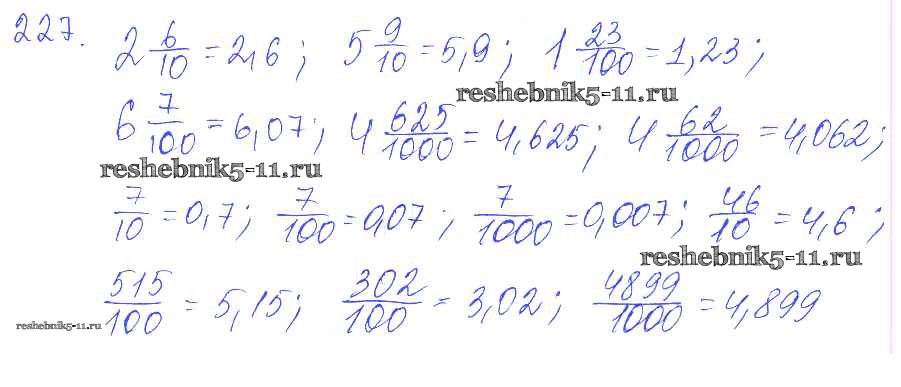 227.
2 6/10 = 2,6; 5 9/10 = 5,9; 1 23/100 = 1,23;
reshebnik5-11.ru
6 7/100 = 6,07; 4 625/1000 = 4,625; 4 62/1000 = 4,062;
reshebnik5-11.ru
7/10 = 0,7; 7/100 = 0,07; 7/1000 = 0,007; 46/10 = 4,6;
reshebnik5-11.ru
515/100 = 5,15; 302/100 = 3,02; 4899/1000 = 4,899
reshebnik5-11.ru